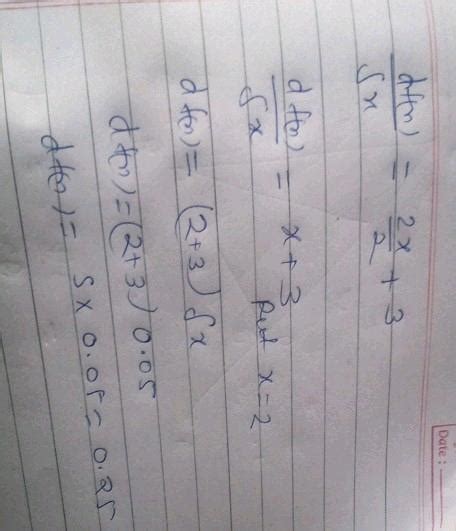 Date :
df(x)/δx = 2x/2 + 3
df(x)/δx = x + 3
Put x = 2
df(x) = (2+3) δx
df(x) = (2+3) 0.05
df(x) = 5 x 0.05 = 0.25